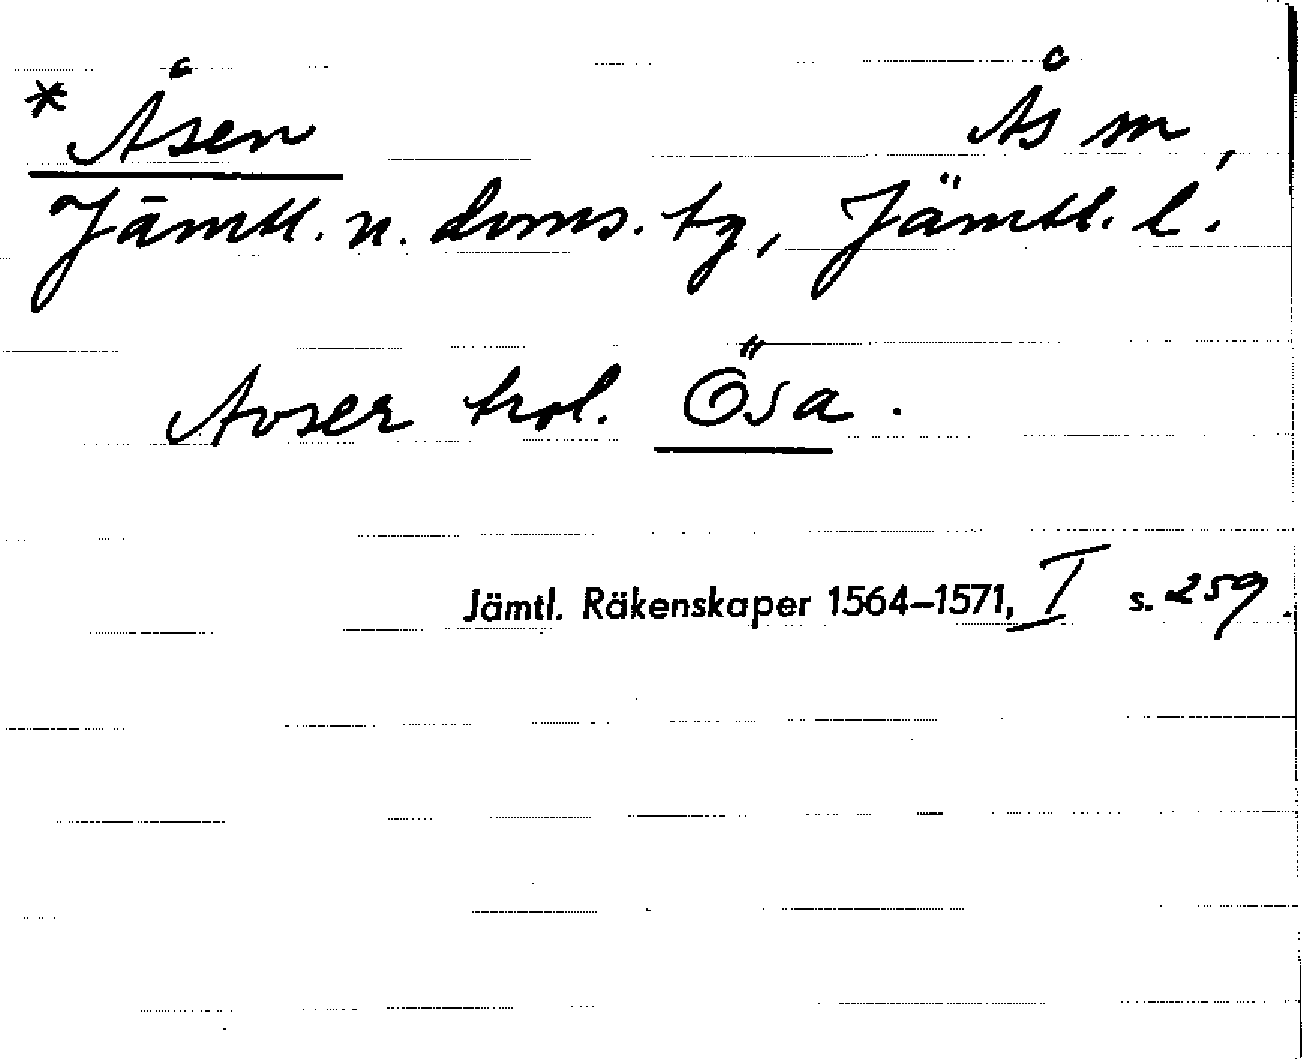 * Åsen Ås sn,
Jämtl. n. doms. tg, Jämtl. l.
Avser trol. Ösa.
Jämtl. Räkenskaper 1564–1571, I s. 259.